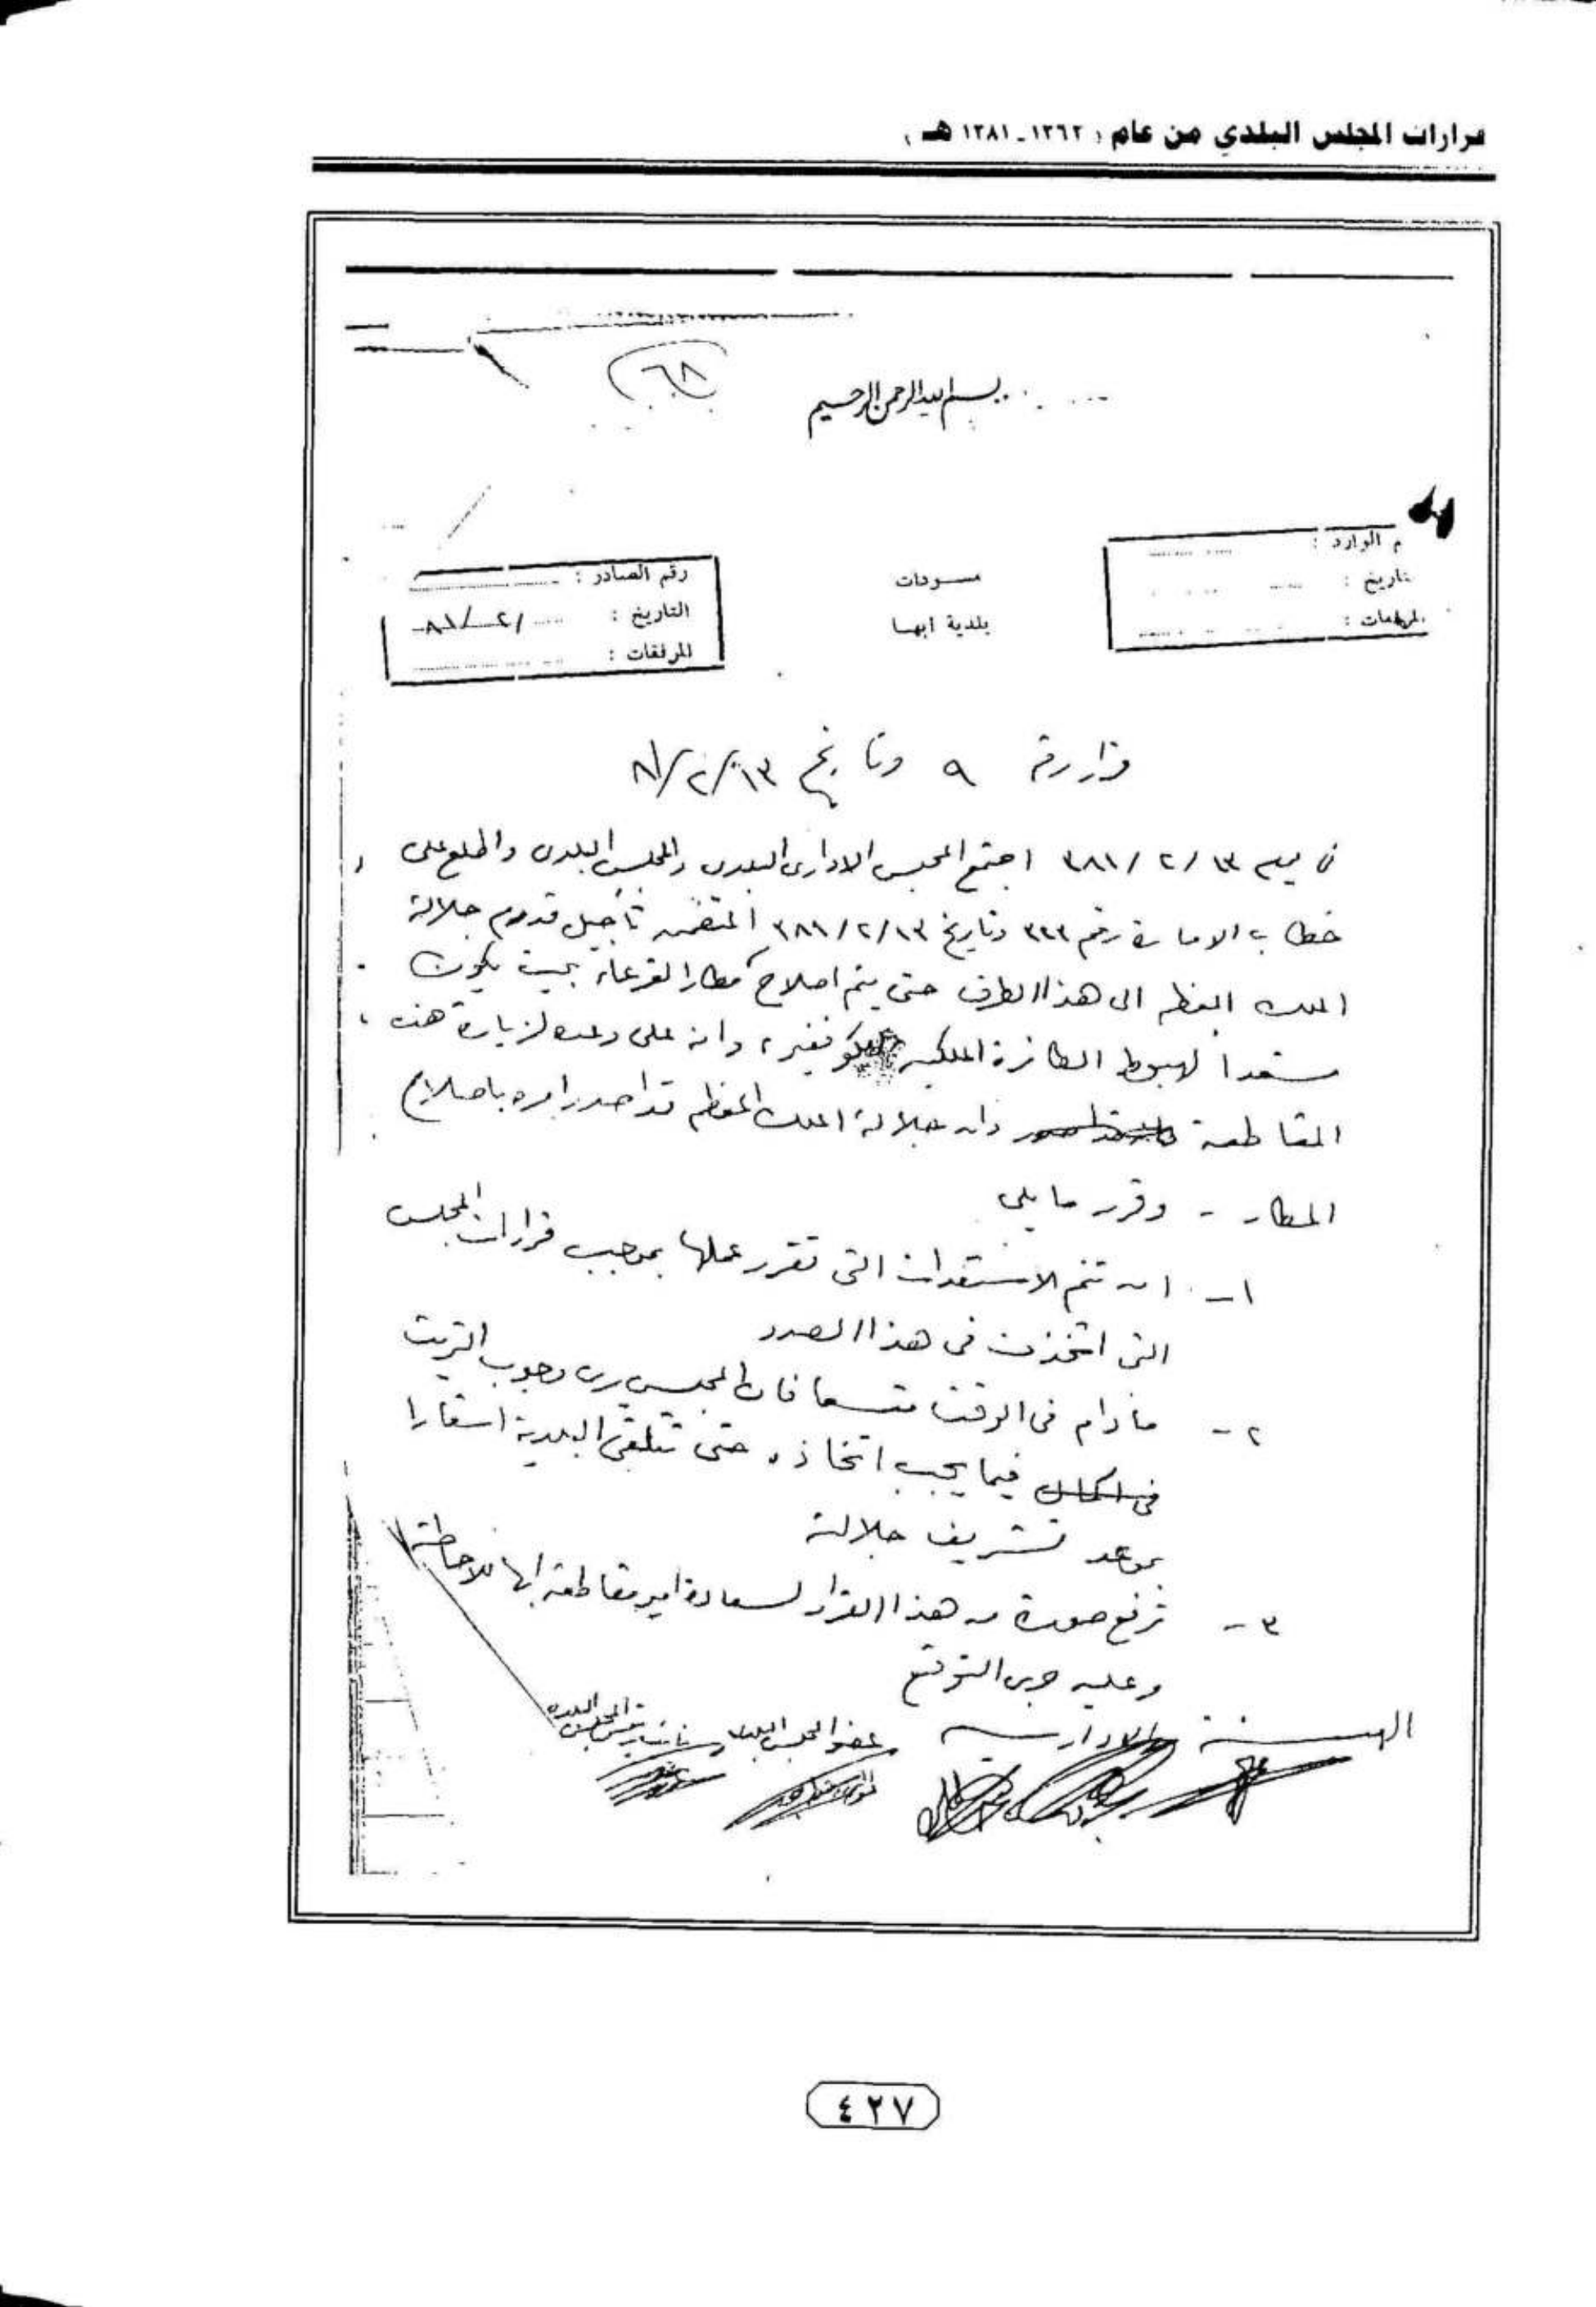 قرارات المجلس البلدي من عام (١٣٦٢ - ١٣٨١ هـ)
٦٨
بسم الله الرحمن الرحيم
م الوارد :
تاريخ :
المرفقات :
مسودات
بلدية ابها
رقم الصادر :
التاريخ : / ٢ / ٨١
المرفقات :
قرار رقم ٩ وتاريخ ١٣/٢/٨١
في يوم ١٣/٢/٣٨١ اجتمع المجلس الادارى البلدى والمجلس البلدى واطلع على
خطاب الامارة رقم وتاريخ ١٣/٢/٣٨١ المتضمن تأجيل قدوم جلالة
الملك المعظم الى هذا الطرف حتى يتم اصلاح مطار القرعاء بحيث يكون
مستعدا لهبوط الطائرة الملكية وانه على وعده لزيارة هذه
المقاطعة وان جلالة الملك المعظم قد اصدر امره باصلاح
المطار - وقرر ما يلى
١- ان تتم الاستعدادات التى تقرر عملها بموجب قرارات المجلس
التى اتخذت فى هذا الصدد
٢- مادام فى الوقت متسعا فان المجلس يرى وجوب التريث
فيما يجب اتخاذه حتى تتلقى البلدية اشعارا
بموعد تشريف جلالته
٣- ترفع صورة من هذا القرار لسعادة امير مقاطعة ابها للاحاطة
وعليه جرى التوقيع
الهيئة الادارية
عضو المجلس البلدى
نائب رئيس المجلس البلدى
٤٢٧